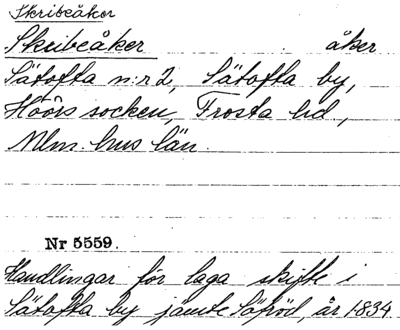 Skribeåker
Skribeåker åker
Sätofta n:r 2, Sätofta by,
Höörs socken, Frosta hd,
Mlm. hus län.
Nr 5559.
Handlingar för laga skifte i
Sätofta by jämte Söfröd, år 1834